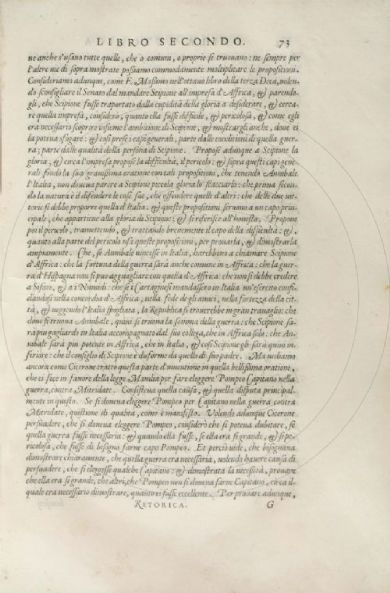 LIBRO SECONDO. 73
ne anche s'usano tutte quelle, che ò comuni, ò proprie si truovano: ne sempre per
l'altre me di sopra mostrate possiamo commodamente moltiplicare le propositioni.
Consideriamo adunque, come F. Massimo nell'ottavo libro della terza Deca, volen-
do sconsigliare il Senato dal mandare Scipione all'impresa d'Affrica, & parendo-
gli, che Scipione fusse traportato dalla cupidità della gloria à desiderare, & cerca-
re quella impresa, considerò, quanto ella fusse difficile, & pericolosa, & come egli
era necessario scoprire insieme l'ambitione di Scipione, & mostrargli anche, dove ei
la poteva sfogare: & così prese i capi generali, parte dalle conditioni di quella guer-
ra; parte dalle qualità della persona di Scipione. Propose adunque à Scipione la
gloria, & circa l'impresa propose la difficultà, il pericolo: & sopra questi capi gene-
rali fondò la sua gravissima oratione con tali propositioni, che tenendo Annibale
l'Italia, non doveva parere à Scipione piccola gloria lo scacciarlo: che prima secon-
do la natura è il difendere le cose sue, che offendere quelle d'altri: che della sua vit-
toria si debbe proporre quella d'Italia. & queste propositioni servono à un capo prin-
cipale, che appartiene alla gloria di Scipione: & si referisce all'honesto. Propone
poi il pericolo, tramettendo, & trattando brevemente il capo della difficultà: &,
quanto alla parte del pericolo usò queste propositioni, per provarla, & dimostrarla
ampiamente. Che, se Annibale vincesse in Italia, harebbono à chiamare Scipione
d'Affrica: che la fortuna della guerra sarà anche comune in Affrica: che la guer-
ra d'Hispagna non si può agguagliare con quella d'Affrica: che non si debbe credere
a Siface, & a i Numidi: che se i Cartaginesi mandassero in Italia un'esercito confi-
dandosi nella concordia d'Affrica, nella fede de gli amici, nella fortezza della cit-
tà, & veggendo l'Italia spogliata, la Republica si troverebbe in gran travaglio: che
dove si truova Annibale, quivi si truova la somma della guerra: che Scipione sa-
rà più gagliardo in Italia accompagnato dal suo collega, che in Affrica solo: che An-
nibale sarà più potente in Affrica, che in Italia, & così Scipione gli sarà quivi in-
feriore: che il consiglio di Scipione è disforme da quello di suo padre. Ma vediamo
ancora come Cicerone trattò questa parte d'inventione in quella bellissima oratione,
che ei fece in favore della legge Manilia per fare eleggere Pompeo Capitano nella
guerra, contra Mitridate. Considerò questa causa, & quella disputa principal-
mente in questo. Se si doveva eleggere Pompeo per Capitano nella guerra, contra
Mitridate, quistione di qualità, come è manifesto. Volendo adunque Cicerone
persuadere, che si dovesse eleggere Pompeo, considerò che si poteva dubitare, se
quella guerra fusse necessaria: & quando ella fusse, se ella era sì grande, & sì pe-
ricolosa, che fusse di bisogno farne capo Pompeo. Et perciò vide, che bisognava
dimostrare chiaramente, che quella guerra era necessaria, volendo havere causa di
persuadere, che si eleggesse qualche Capitano: & dimostrata la necessità, provare
che ella era sì grande, che altri, che Pompeo non si doveva farne Capitano, circa il
quale era necessario dimostrare, quanto ei fusse eccellente. Per provare adunque,
RETORICA. G